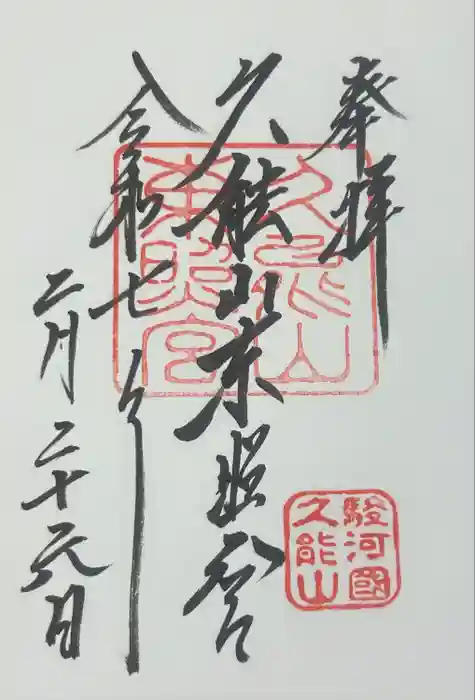 奉拝
久能山東照宮
令和七年
二月二十六日
久能山
東照宮
駿河國
久能山